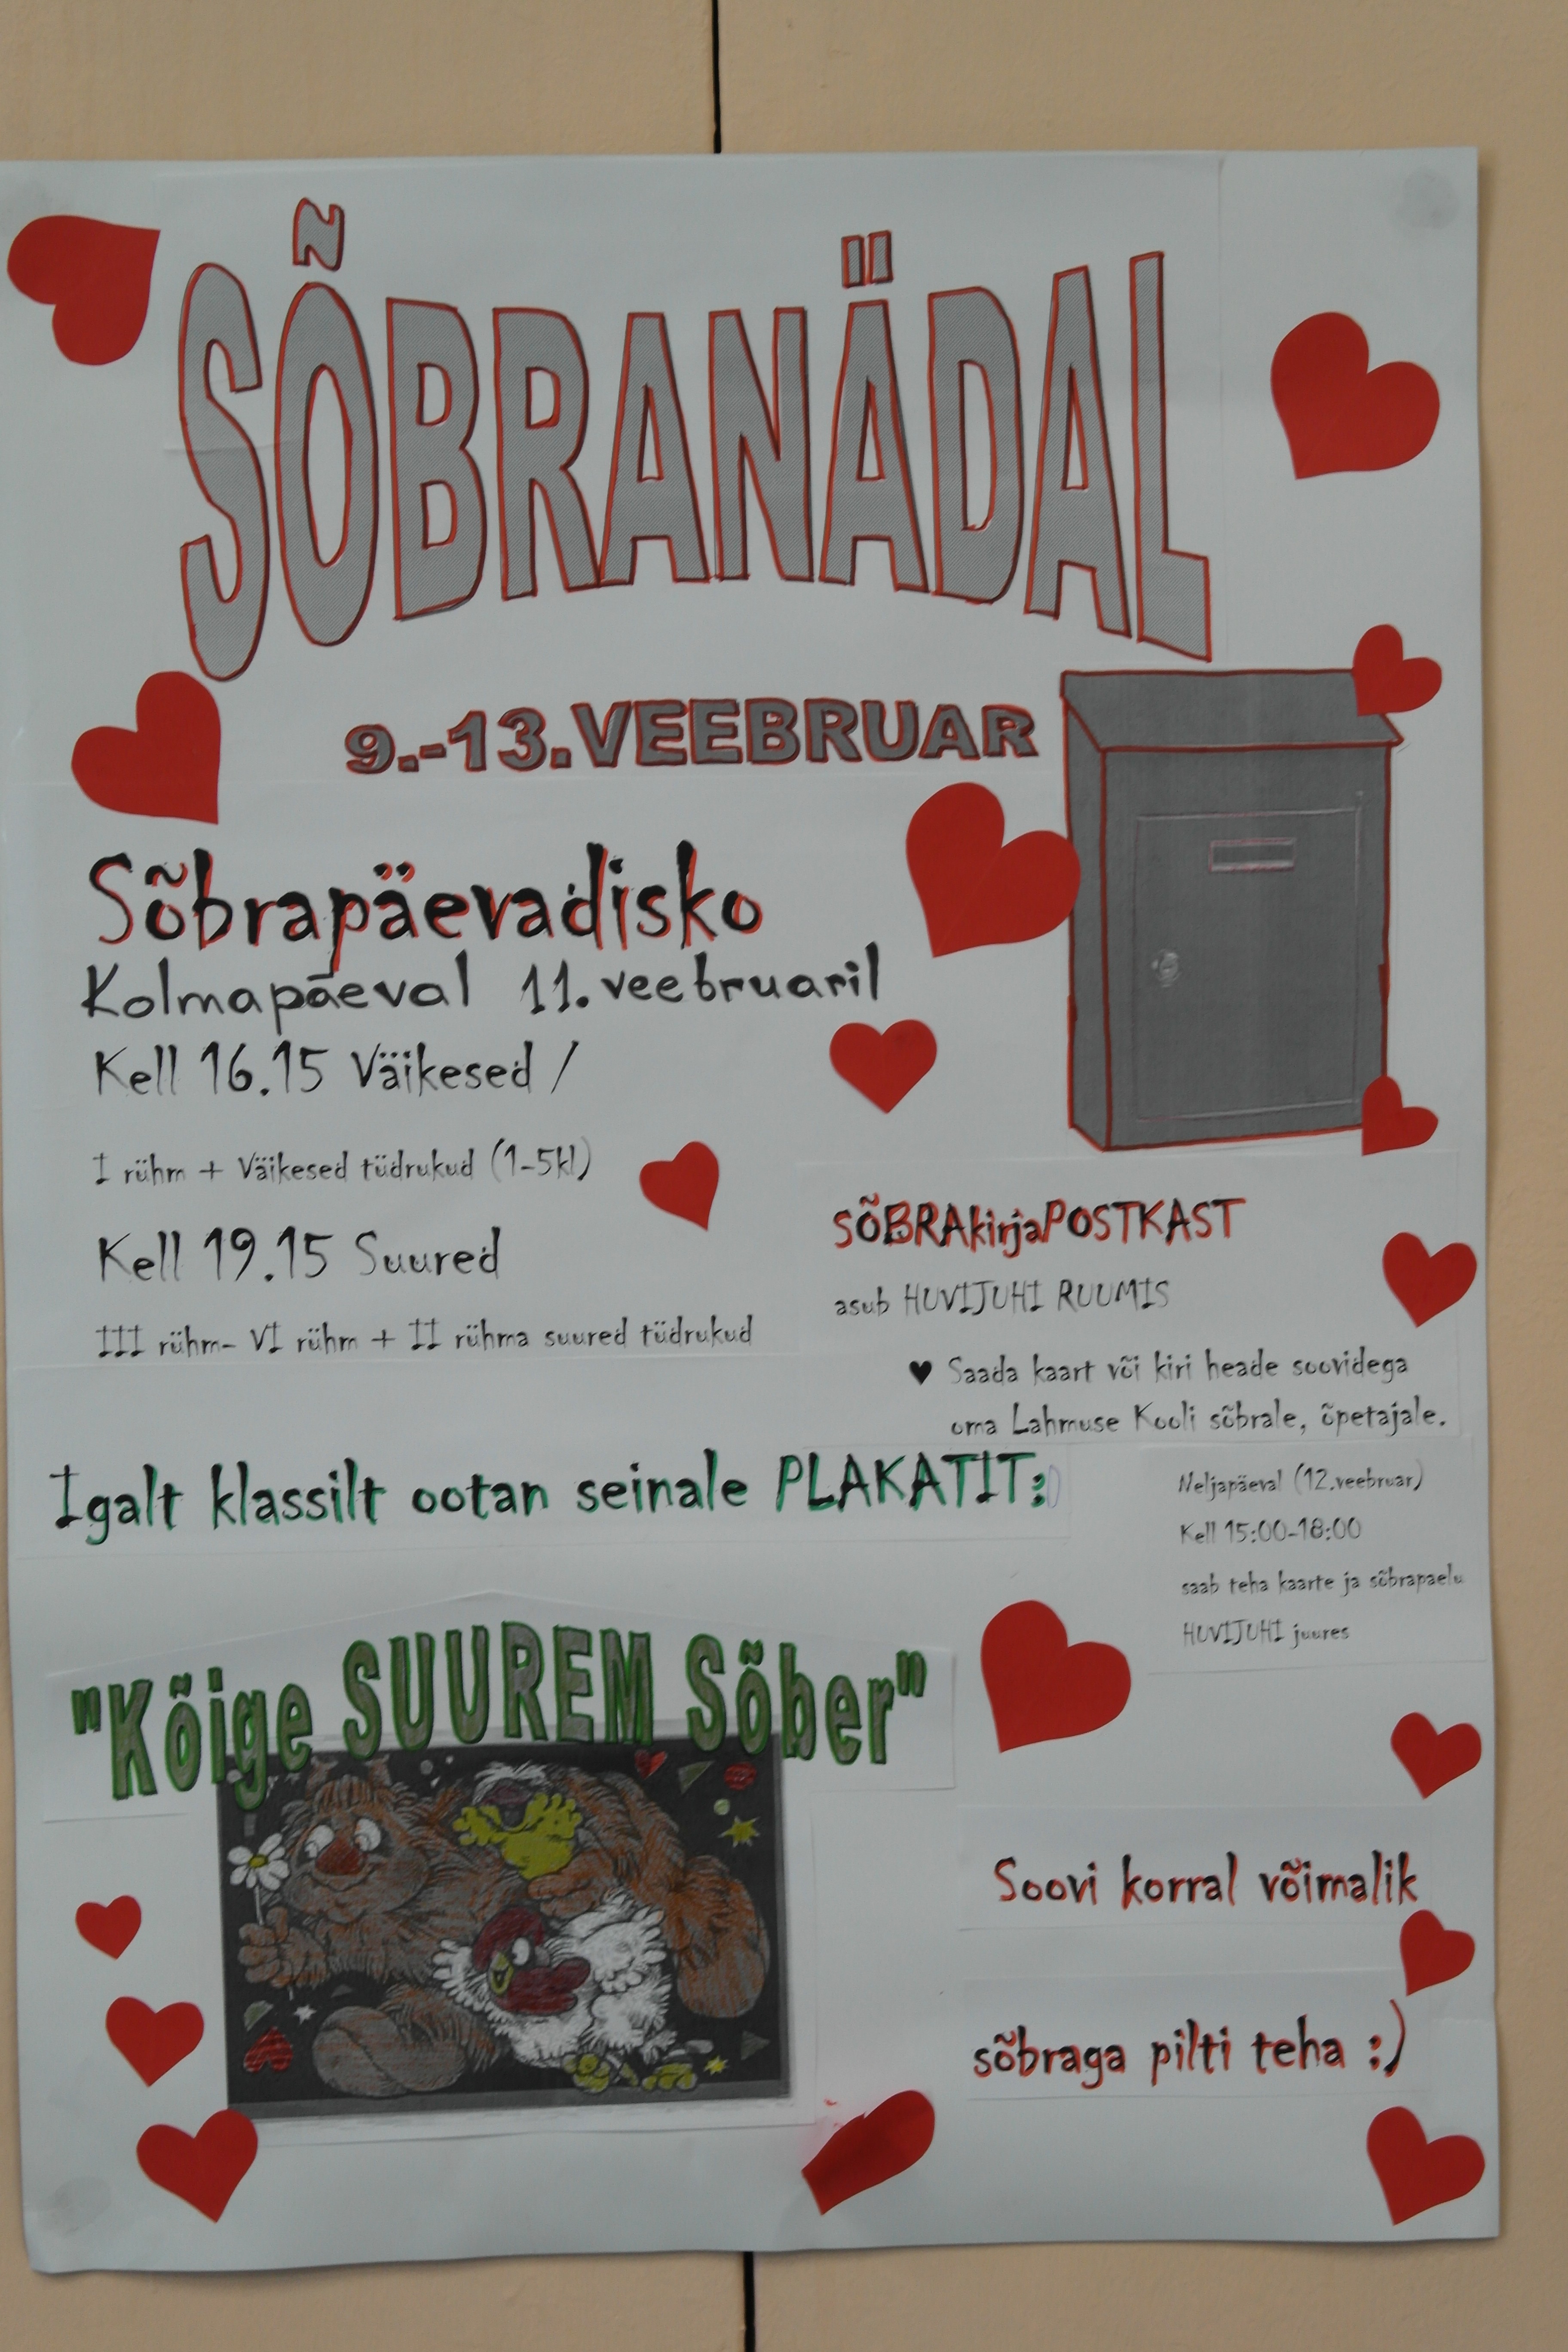 SÕBRANÄDAL
9.-13.VEEBRUAR
Sõbrapäevadisko
Kolmapäeval 11.veebruaril
Kell 16.15 Väikesed /
I rühm + Väikesed tüdrukud (1-5kl)
Kell 19.15 Suured
III rühm- VI rühm + II rühma suured tüdrukud
SÕBRAkirjaPOSTKAST
asub HUVIJUHI RUUMIS
♥ Saada kaart või kiri heade soovidega
oma Lahmuse Kooli sõbrale, õpetajale.
Igalt klassilt ootan seinale PLAKATIT:
Neljapäeval (12.veebruar)
Kell 15:00-18:00
saab teha kaarte ja sõbrapaelu
HUVIJUHI juures
"Kõige SUUREM Sõber"
Soovi korral võimalik
sõbraga pilti teha :)